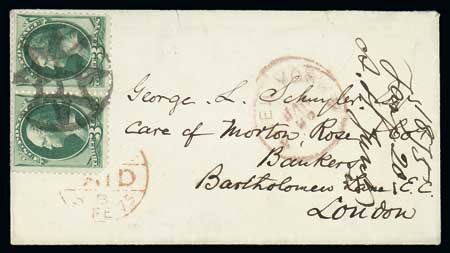 George L. Schuyler Esq
Care of Morton, Rose & Co
Bankers
Bartholomew Lane, E.C.
London
PAID
FE 75
YORK
Jan 20